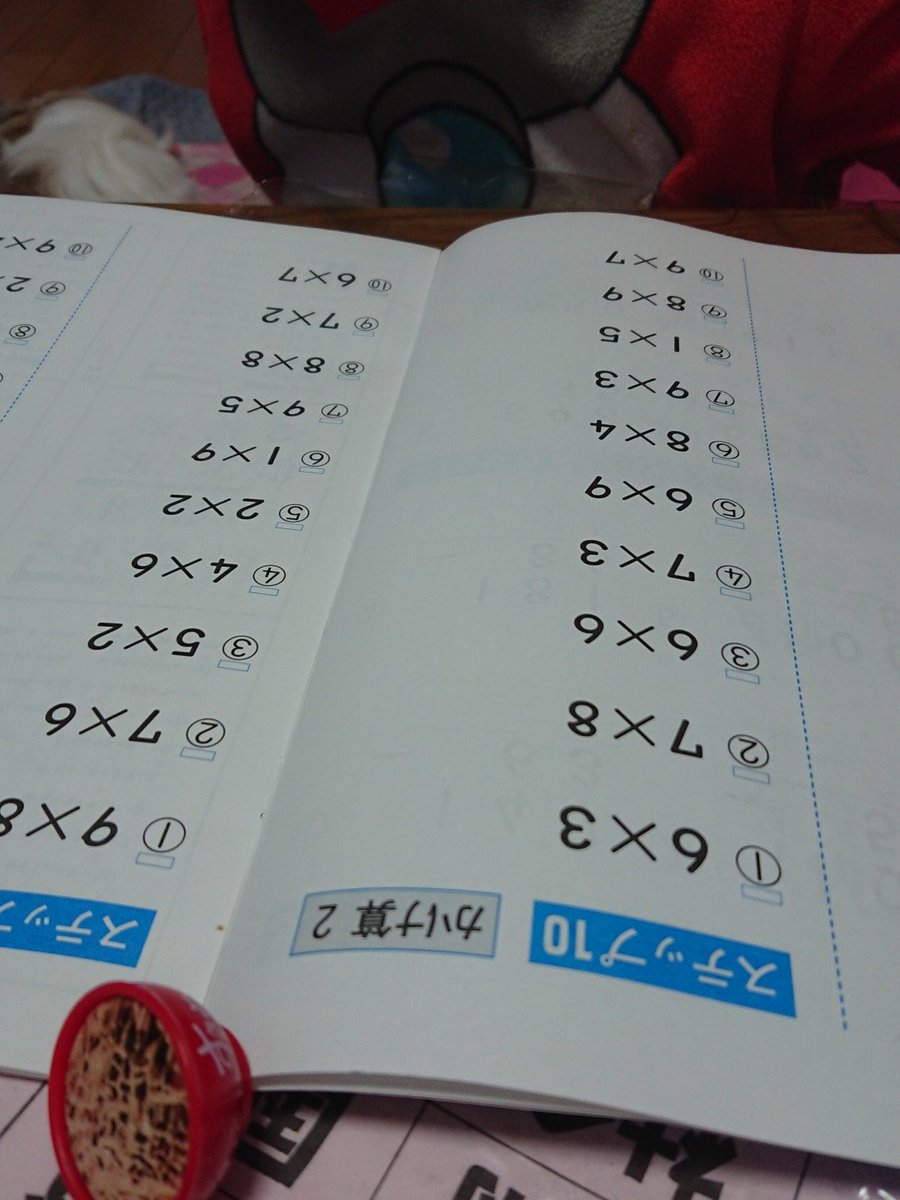 社
国
ステップ10 かけ算 2
① 6×3
② 7×8
③ 6×6
④ 7×3
⑤ 6×9
⑥ 8×4
⑦ 9×3
⑧ 1×5
⑨ 8×9
⑩ 9×7
ステッ
① 9×8
② 7×6
③ 5×2
④ 4×6
⑤ 2×2
⑥ 1×9
⑦ 9×5
⑧ 8×8
⑨ 7×2
⑩ 6×7
⑧
⑨ 2×
⑩ 9×